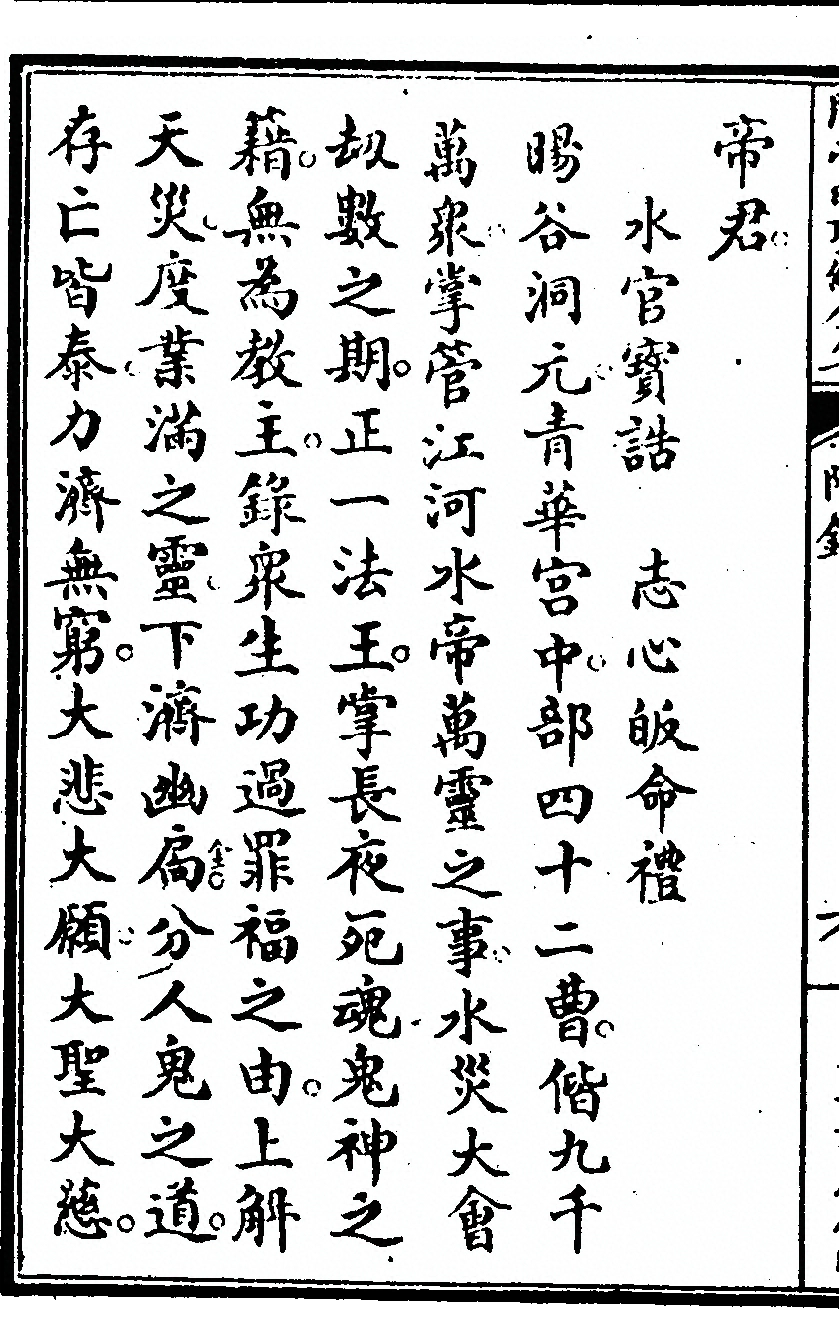 帝君。
水官寶誥　志心皈命禮
暘谷洞元。青華宮中。部四十二曹。偕九千
萬眾。掌管江河水帝萬靈之事。水災大會
刼數之期。正一法王。掌長夜死魂鬼神之
籍。無為教主。錄眾生功過罪福之由。上解
天災。度業滿之靈。下濟幽扃。分人鬼之道。
存亡皆泰。力濟無窮。大悲大願。大聖大慈。